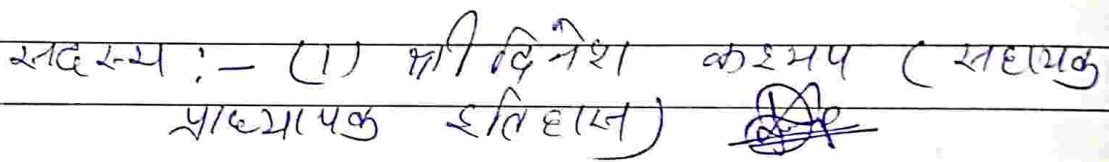 सदस्य :- (1) श्री दिनेश कश्यप ( सहायक
प्राध्यापक इतिहास)